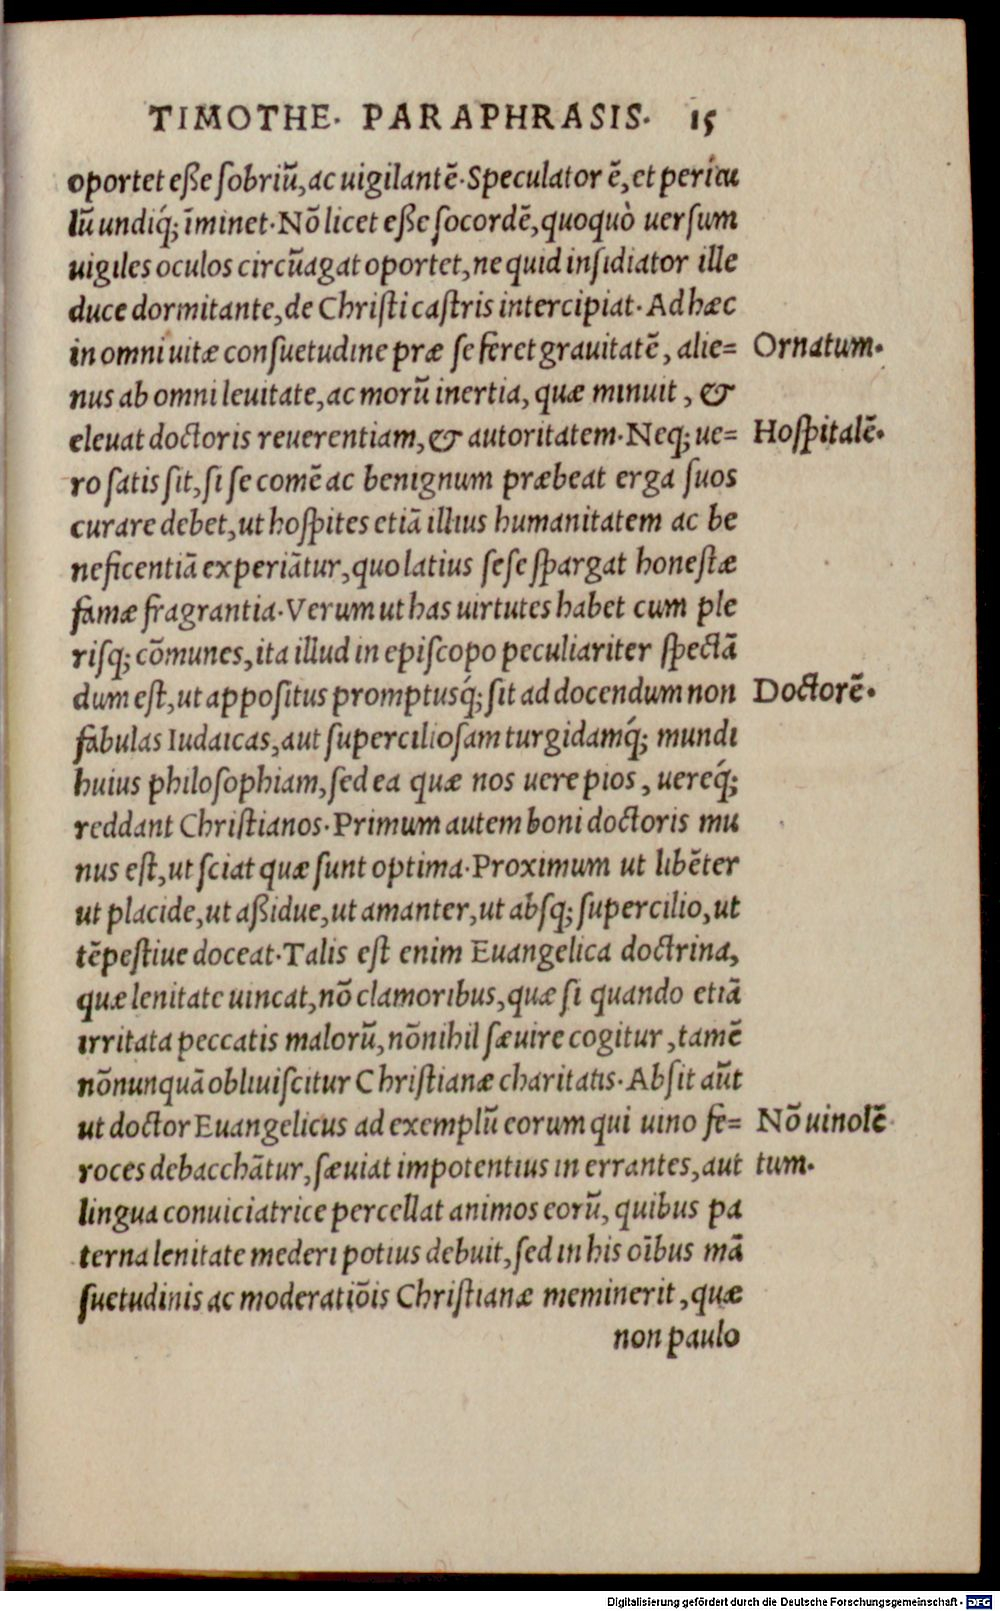 TIMOTHE. PARAPHRASIS. 15
oportet eße ſobriū, ac uigilantē. Speculator ē, et pericu
lū undiq́; īminet. Nō licet eße ſocordē, quoquò uerſum
uigiles oculos circūagat oportet, ne quid inſidiator ille
duce dormitante, de Chriſti caſtris intercipiat. Ad hæc
in omni uitæ conſuetudine præ ſe feret grauitatē, alie= Ornatum.
nus ab omni leuitate, ac morū inertia, quæ minuit, &
eleuat doctoris reuerentiam, & autoritatem. Neq; ue= Hoſpitalē.
ro ſatis ſit, ſi ſe comē ac benignum præbeat erga ſuos
curare debet, ut hoſpites etiā illius humanitatem ac be
neficentiā experiātur, quo latius ſeſe ſpargat honeſtæ
famæ fragrantia. Verum ut has uirtutes habet cum ple
riſq; cōmunes, ita illud in epiſcopo peculiariter ſpectā
dum eſt, ut appoſitus promptusq́; ſit ad docendum non Doctorē.
fabulas Iudaicas, aut ſupercilioſam turgidamq́; mundi
huius philoſophiam, ſed ea quæ nos uere pios, uereq́;
reddant Chriſtianos. Primum autem boni doctoris mu
nus eſt, ut ſciat quæ ſunt optima. Proximum ut libēter
ut placide, ut aßidue, ut amanter, ut abſq; ſupercilio, ut
tēpeſtiue doceat. Talis eſt enim Euangelica doctrina,
quæ lenitate uincat, nō clamoribus, quæ ſi quando etiā
irritata peccatis malorū, nōnihil ſæuire cogitur, tamē
nōnunquā obliuiſcitur Chriſtianæ charitatis. Abſit aūt
ut doctor Euangelicus ad exemplū eorum qui uino fe= Nō uinolē
roces debacchātur, ſæuiat impotentius in errantes, aut tum.
lingua conuiciatrice percellat animos eorū, quibus pa
terna lenitate mederi potius debuit, ſed in his oībus mā
ſuetudinis ac moderatiōis Chriſtianæ meminerit, quæ
non paulo
Digitalisierung gefördert durch die Deutsche Forschungsgemeinschaft - DFG